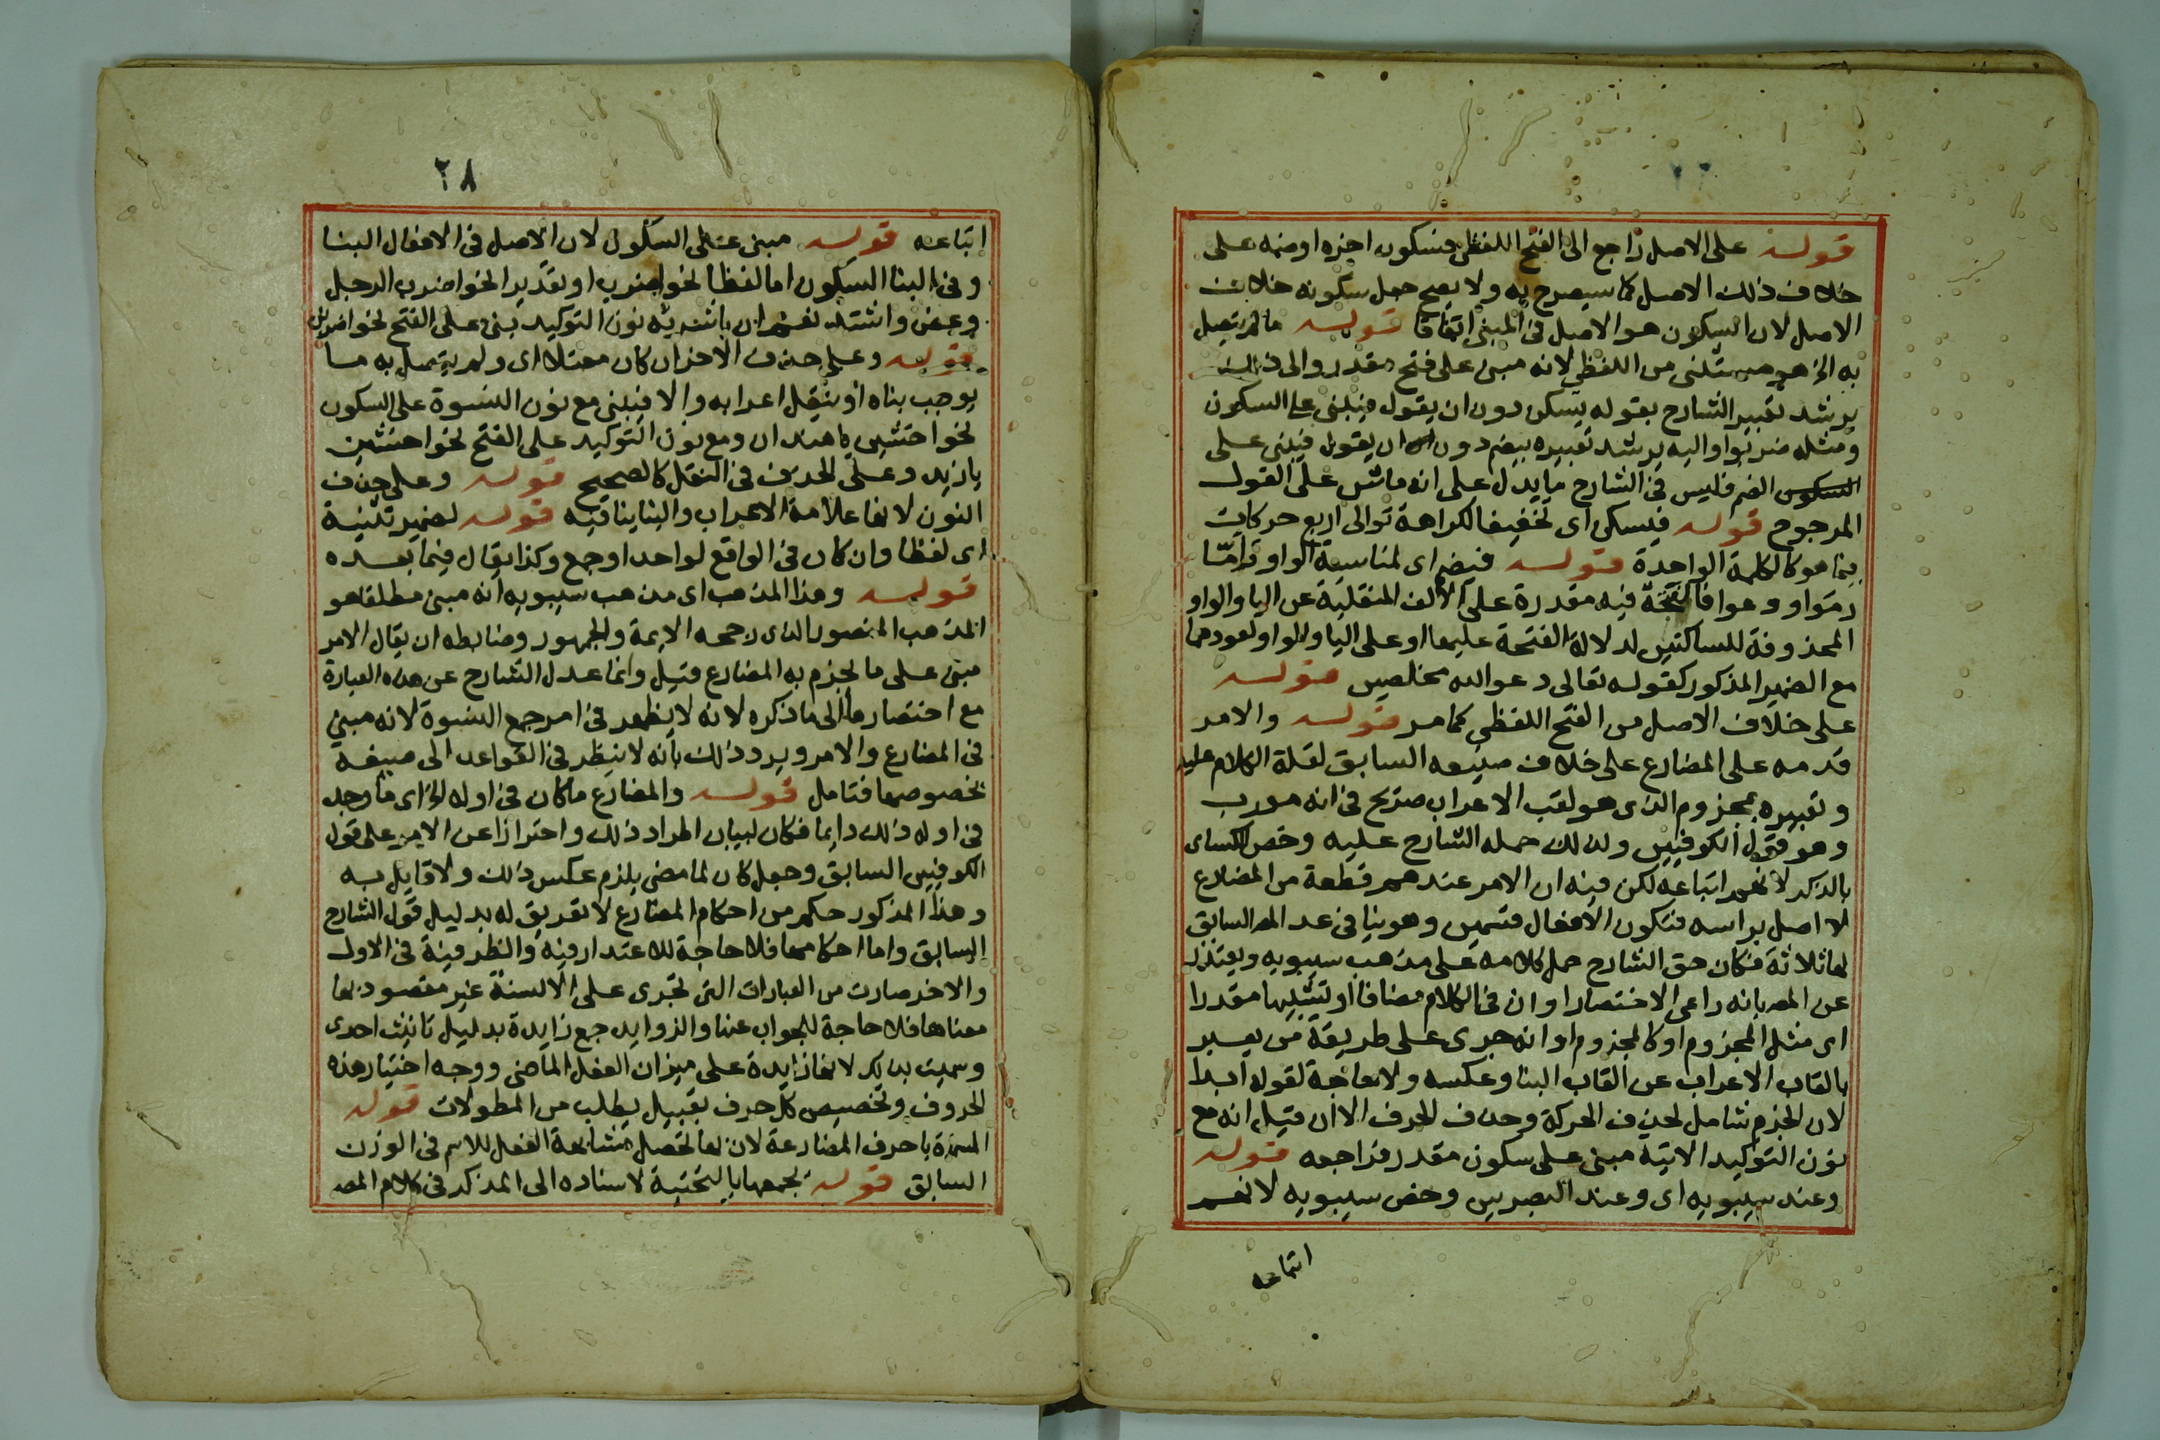 قوله على الاصل راجع الى الفتح اللفظي فسكون اخره اوضمه على
خلاف ذلك الاصل كما سيصرح به ولا يصح جعل سكونه خلاف
الاصل لان السكون هو الاصل في المبنى اتفاقا قوله مالم يتصل
به الخ هو مستثنى من اللفظي لانه مبنى على فتح مقدر والى ذلك
يرشد تعبير الشارح بقوله يسكن دون ان يقول فيبنى على السكون
ومثله ضربوا واليه يرشد تعبيره بيضم دون ان يقول فيبنى على
السكون الضم فليس في الشارح ما يدل على انه ماش على القول
المرجوح قوله فيسكن اى تخفيفا لكراهة توالى اربع حركات
فيما هو كالكلمة الواحدة قوله فيضم اى لمناسبة الواو واما
رموا ودعوا فالفتحة فيه مقدرة على الالف المنقلبة عن اليا والواو
المحذوفة للساكنين لدلالة الفتحة عليها او على اليا والواو لعودهما
مع الضمير المذكور كقوله تعالى دعوا الله مخلصين قوله
على خلاف الاصل من الفتح اللفظي كما مر قوله والامر
قدمه على المضارع على خلاف صنيعه السابق لقلة الكلام عليه
وتعبيره بمجزوم الذى هو لقب الاعراب صريح في انه معرب
وهو قول الكوفيين ولذلك حمله الشارح عليه وخص الكساى
بالذكر لانهم اتباعه لكن فيه ان الامر عندهم قطعة من المضارع
لا اصل براسه فتكون الافعال قسمين وهو ينافى عد المص السابق
لها ثلاثة فكان حق الشارح حمل كلامه على مذهب سيبويه ويعتذر
عن المص بانه راعى الاختصار او ان في الكلام مضافا او تشبيها مقدرا
اى مثل المجزوم او كالمجزوم او انه جرى على طريقة من يعبر
بالقاب الاعراب عن القاب البنا وعكسه ولا يعاجة لقوله ابدا
لان الجزم شامل لحذف الحركة وحذف الحرف الا ان قيل انه مع
نون التوكيد الاتية مبنى على سكون مقدر فراجعه قوله
وعند سيبويه اى وعند البصريين وخص سيبويه لانهم
اتباعه
٢٨
اتباعه قوله مبنى على السكون لان الاصل في الافعال البنا
وفي البنا السكون اما لفظا نحو اضرب او تقديرا نحو اضرب الرجل
وعض واشتد نعم ان باشرته نون التوكيد بنى على الفتح نحو اضربن
قوله وعلى حذف الاخر ان كان معتلا اى ولم يتصل به ما
يوجب بناه او ينقل اعرابه والا فيبنى مع نون النسوة على السكون
نحو اخشين يا هندات ومع نون التوكيد على الفتح نحو اخشين
يازيد وعلى الحذف في الثقل كالصحيح قوله وعلى حذف
النون لانها علامة الاعراب والبنا ينافيه قوله لضمير تثنية
اى لفظا وان كان في الواقع لواحد او جمع وكذا يقال فيما بعده
قوله وهذا المذهب اى مذهب سيبويه انه مبنى مطلقا هو
المذهب المنصور الذى رجحه الايمة والجمهور وضابطه ان يقال الامر
مبنى على ما يجزم به المضارع قيل وانما عدل الشارح عن هذه العبارة
مع اختصارها الى ما ذكره لانه لا يظهر في امر جمع النسوة لانه مبني
في المضارع والامر ويرد ذلك بانه لا ينظر في القواعد الى صيغة
بخصوصها فتامل قوله والمضارع ما كان في اوله الخ اى ما وجد
في اوله ذلك دايما فكان لبيان المراد ذلك واحترازا عن الامر على قول
الكوفيين السابق وجعل كان لما مضى يلزم عكس ذلك ولا قايل به
وهذا المذكور حكم من احكام المضارع لا تعريف له بدليل قول الشارح
السابق واما احكامها فلا حاجة للاعتذار فيه والظرفية في الاول
والاخر صارت من العبارات التي تجرى على الالسنة غير مقصود بها
معناها فلا حاجة للجواب عنها والزوايد جمع زايدة بدليل تانيث احدى
وسميت بذلك لانها زايدة على ميزان الفعل الماضى ووجه اختيار هذه
الحروف وتخصيص كل حرف بقبيل يطلب من المطولات قوله
المسماة باحرف المضارعة لان بها تحصل مشابهة الفعل للاسم في الوزن
السابق قوله يجمعها بالتحتية لاسناده الى المذكر في كلام المص